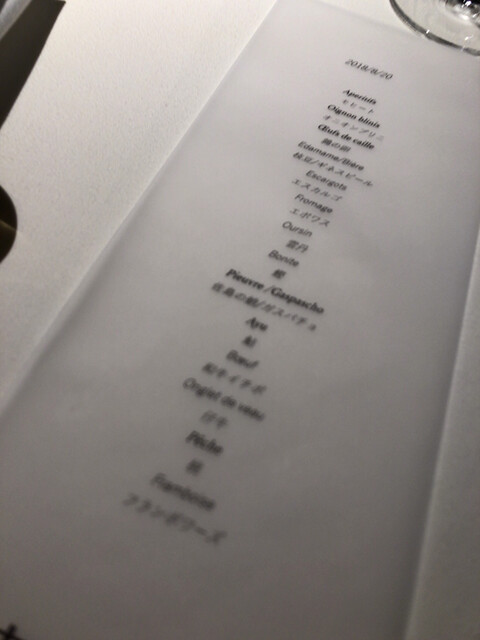 2018/8/20
Aperitifs
モヒート
Oignon blinis
オニオンブリニ
Œufs de caille
鶉の卵
Edamame/Bière
枝豆/ギネスビール
Escargots
エスカルゴ
Fromage
エポワス
Oursin
雲丹
Bonite
鰹
Pieuvre /Gaspascho
佐島の蛸/ガスパチョ
Ayu
鮎
Bœuf
和牛イチボ
Onglet de veau
仔牛
Pêche
桃
Framboise
フランボワーズ